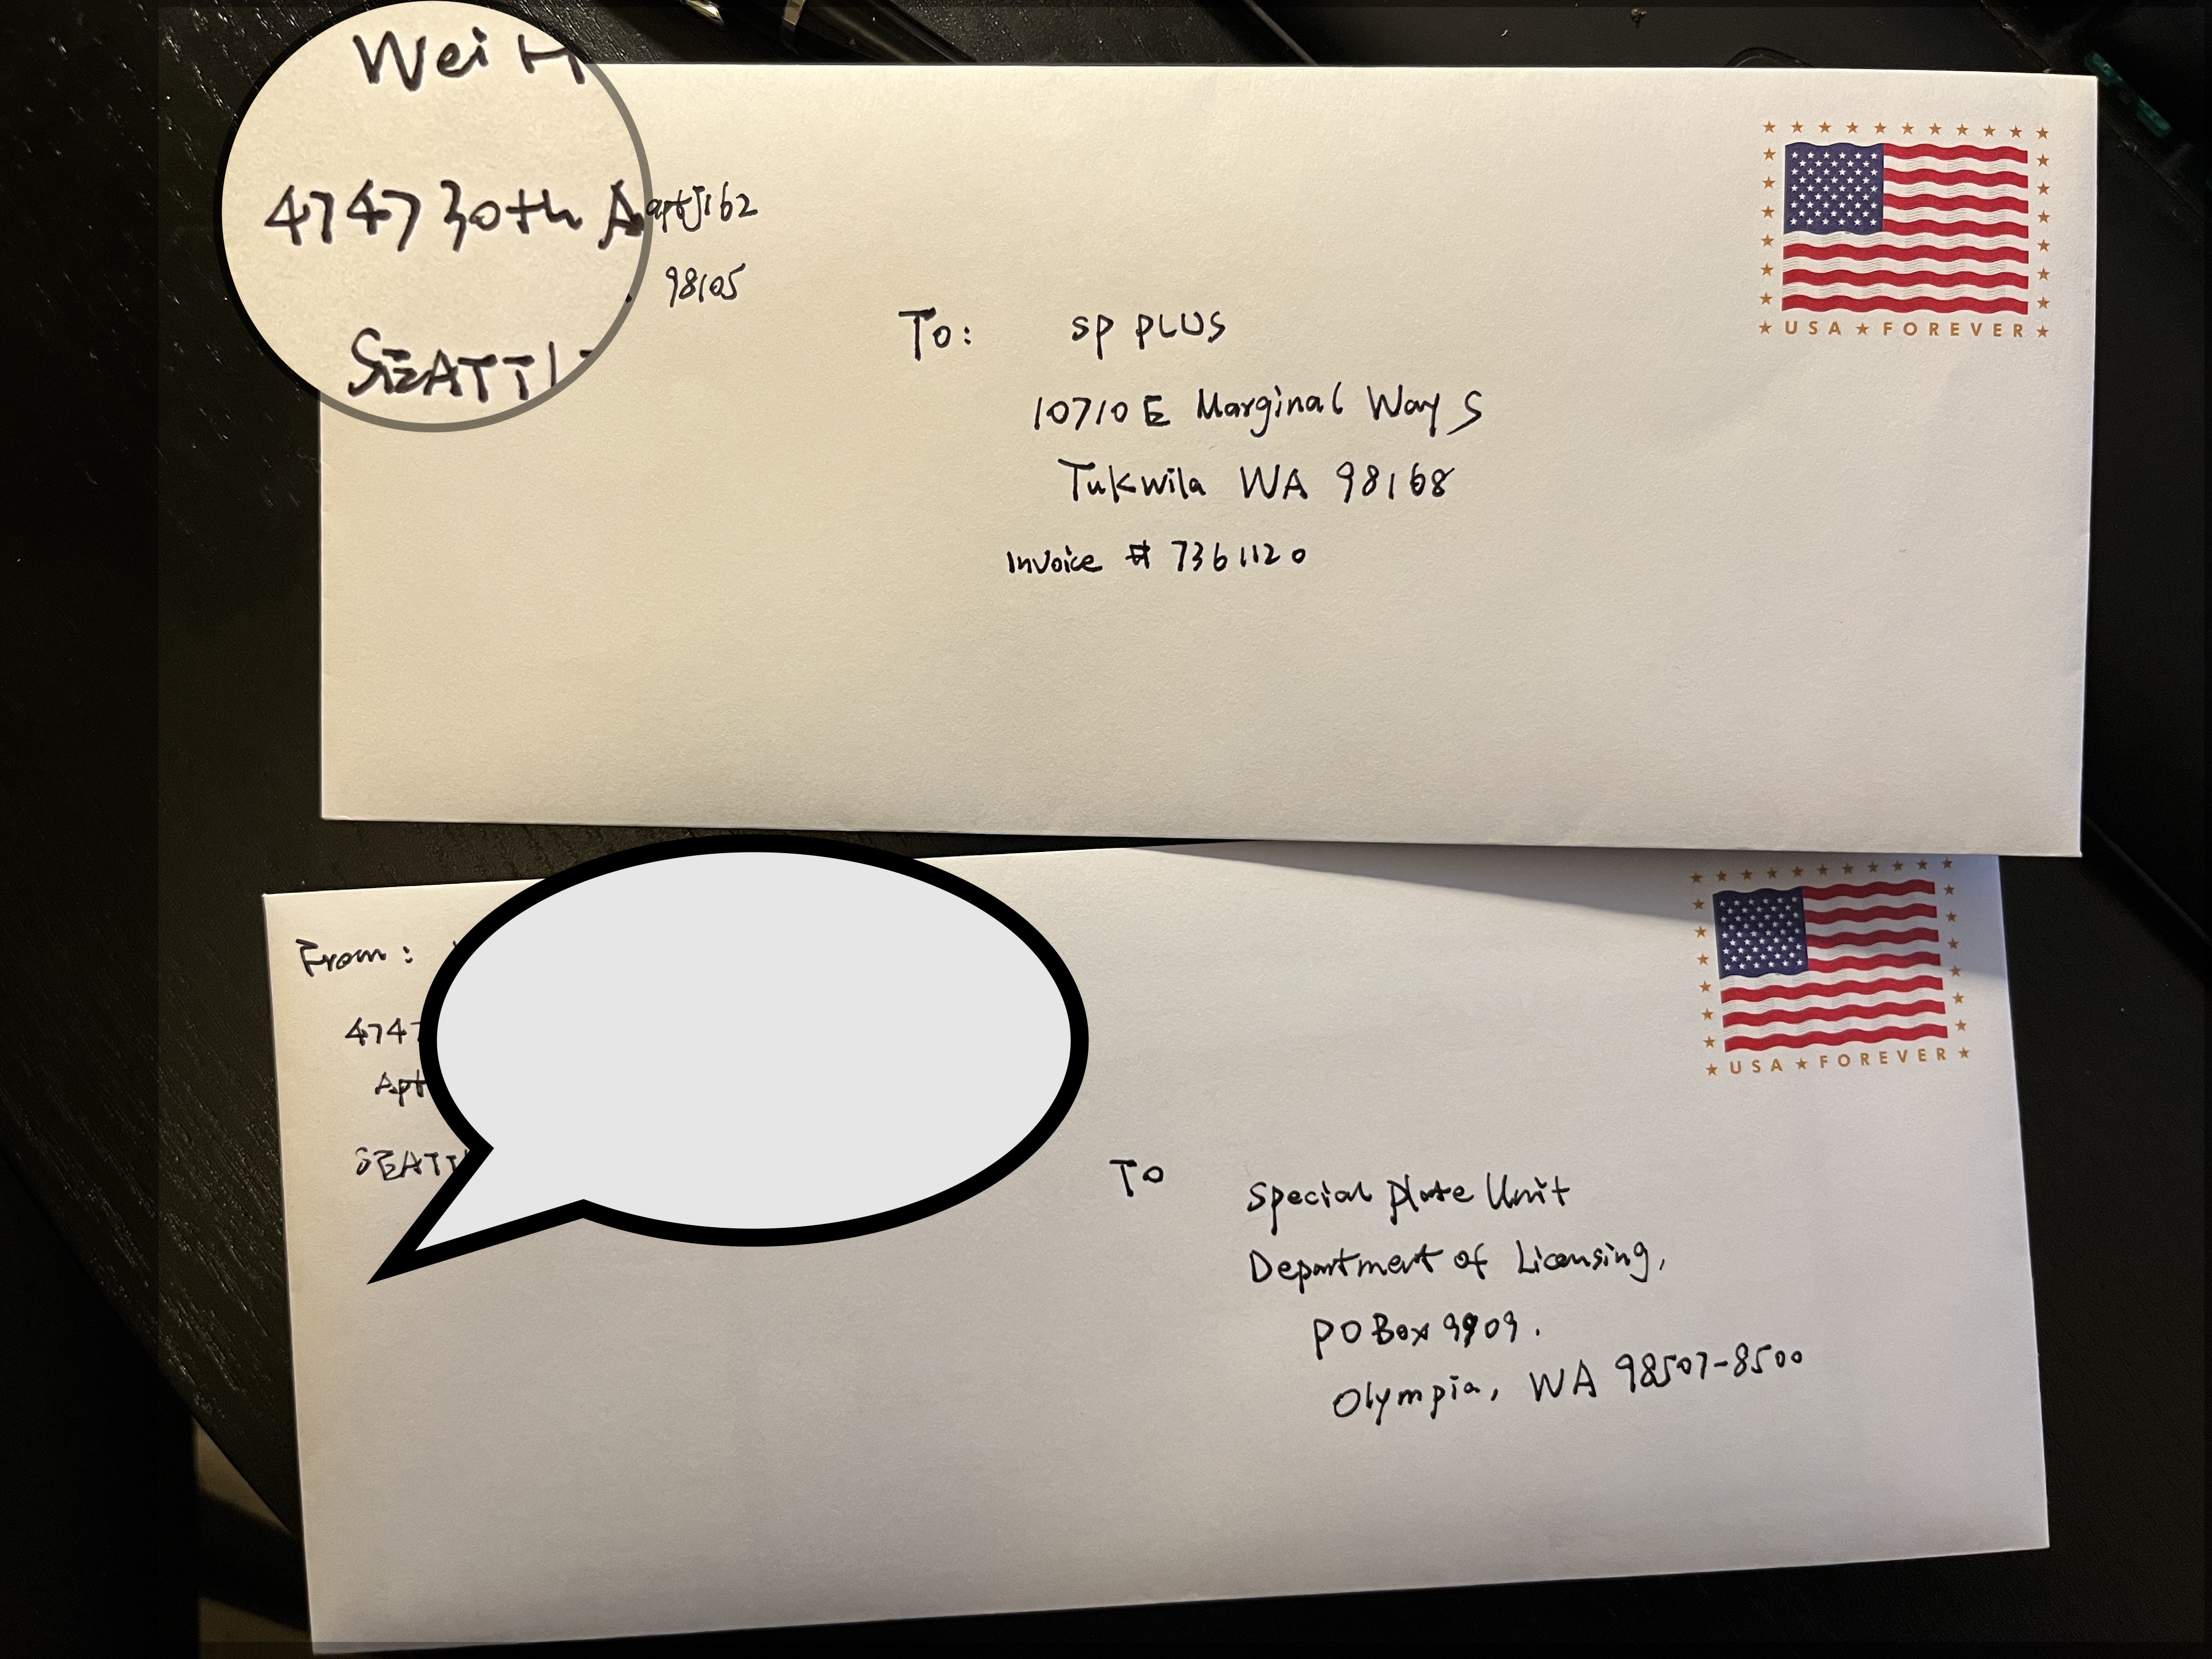 Wei
4747 30th
apt J162
SEATTL
98105
To: SP PLUS
10710 E Marginal Way S
Tukwila WA 98168
Invoice # 7361120
USA FOREVER
From:
4747
Apt
SEATTL
USA FOREVER
To
Special Plate Unit
Department of Licensing,
PO Box 9909.
Olympia, WA 98507-8500